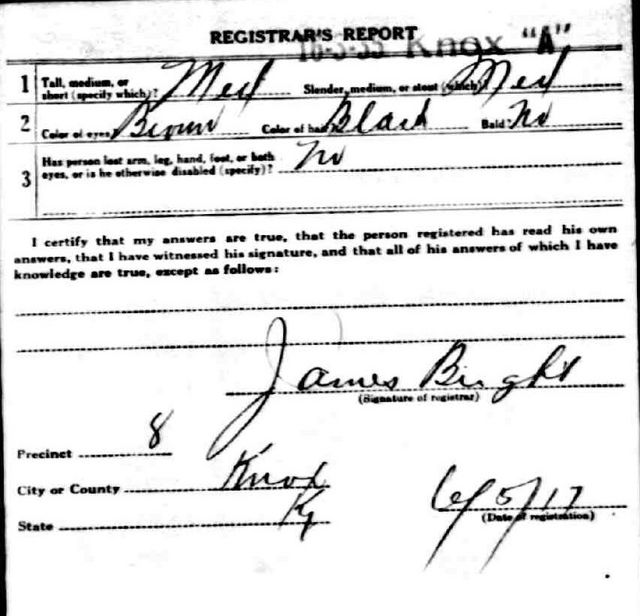 REGISTRAR'S REPORT
16-3-35 Knox "A"
1 Tall, medium, or short (specify which)? Med Slender, medium, or stout (which)? Med
2 Color of eyes Brown Color of hair Black Bald No
3 Has person lost arm, leg, hand, foot, or both
eyes, or is he otherwise disabled (specify)? No
I certify that my answers are true, that the person registered has read his own
answers, that I have witnessed his signature, and that all of his answers of which I have
knowledge are true, except as follows:
James Bright
(Signature of registrar)
Precinct 8
City or County Knox
State Ky 6/5/17
(Date of registration)